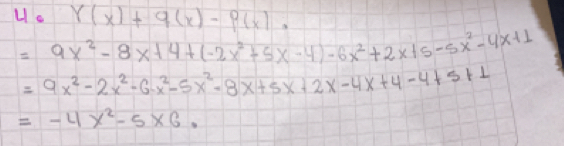 4. r(x) + q(x) - p(x).
= 9x² - 8x + 4 + (-2x² + 5x - 4) - 6x² + 2x + 5 - 5x² - 4x + 1
= 9x² - 2x² - 6x² - 5x² - 8x + 5x + 2x - 4x + 4 - 4 + 5 + 1
= -4x² - 5x 6.